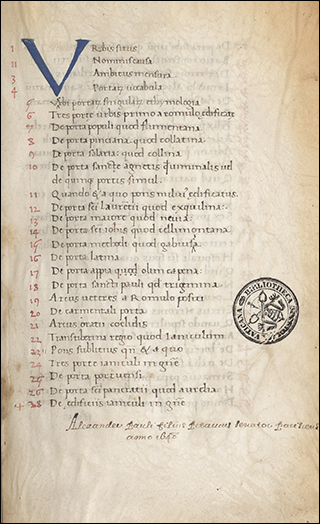 1 Vrbis situs
11 Nominis causa
3 Ambitus mensura
4 Portarum vocabula
5 Vrbis portarum singularum ethymologia
6 Tres porte urbis primo a romulo edificate
7 De porta populi quod flumentana
8 De porta pinciana quod collatina
9 De porta salaria quod collina
10 De porta sancte agnetis quiminalis ud
de quinque portis simul
11 Quando & a quo pons milvius edificatus
12 De porta sci laurentii quod exquilina
13 De porta maiore quod nevia
14 De porta sci iohis quod celimontana
De porta quod gabiusa
16 De porta latina
17 De porta appia quod olim capena
18 De porta sancti pauli quod trigemina
19 Arcus veteres a Romulo positi
20 De carmentali porta
21 Arcus oratii coclidis
22 Transtiberina regio quod ianiculum
23 Pons sublicius & a quo
24 Tres porte ianiculi in
De porta portuensi
26 De porta sci pancratii quod aurelia
28 De edificiis ianiculi in
Alexander Pauli filius Petavius Senator Parisiensis
anno 1650
BIBLIOTHECA VATICANA